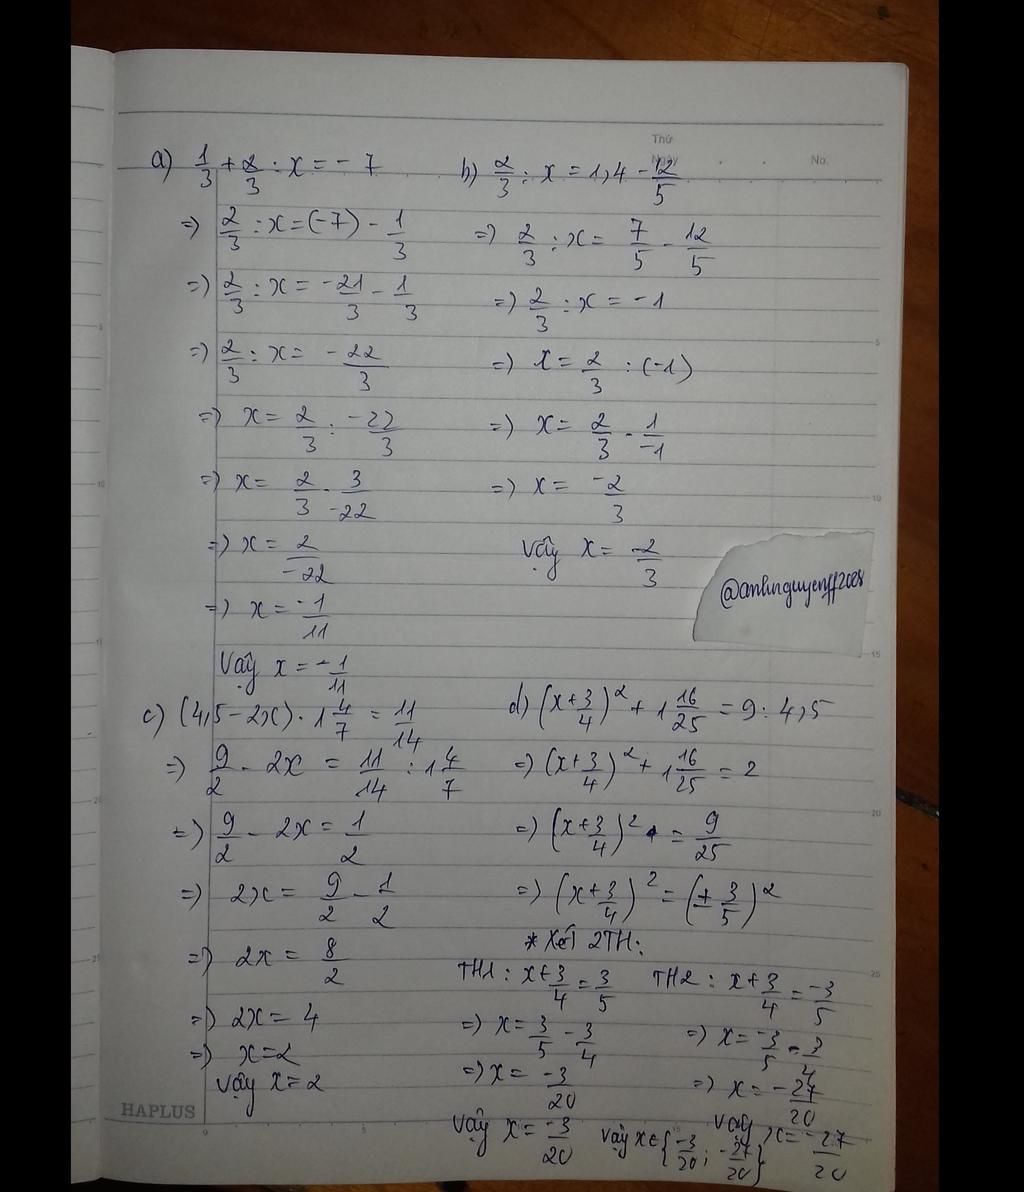 Thứ
Ngày
No.
a) 1/3 + 2/3 : x = - 7
=) 2/3 : x = (-7) - 1/3
=) 2/3 : x = -21/3 - 1/3
=) 2/3 : x = -22/3
=) x = 2/3 : -22/3
=) x = 2/3 . 3/-22
=) x = 2/-22
=) x = -1/11
Vậy x = -1/11
b) 2/3 : x = 1,4 - 12/5
=) 2/3 : x = 7/5 - 12/5
=) 2/3 : x = -1
=) x = 2/3 : (-1)
=) x = 2/3 . 1/-1
=) x = -2/3
Vậy x = -2/3
@anhnguyenff2008
c) (4,5 - 2x) . 1 4/7 = 11/14
=) 9/2 - 2x = 11/14 : 1 4/7
=) 9/2 - 2x = 1/2
=) 2x = 9/2 - 1/2
=) 2x = 8/2
=) 2x = 4
=) x = 2
Vậy x = 2
d) (x + 3/4)² + 1 16/25 = 9 : 4,5
=) (x + 3/4)² + 1 16/25 = 2
=) (x + 3/4)² = 9/25
=) (x + 3/4)² = (± 3/5)²
* Xét 2TH:
TH1 : x + 3/4 = 3/5
=) x = 3/5 - 3/4
=) x = -3/20
Vậy x = -3/20
TH2 : x + 3/4 = -3/5
=) x = -3/5 - 3/4
=) x = -27/20
Vậy x = -27/20
Vậy x ∈ {-3/20 ; -27/20}
HAPLUS